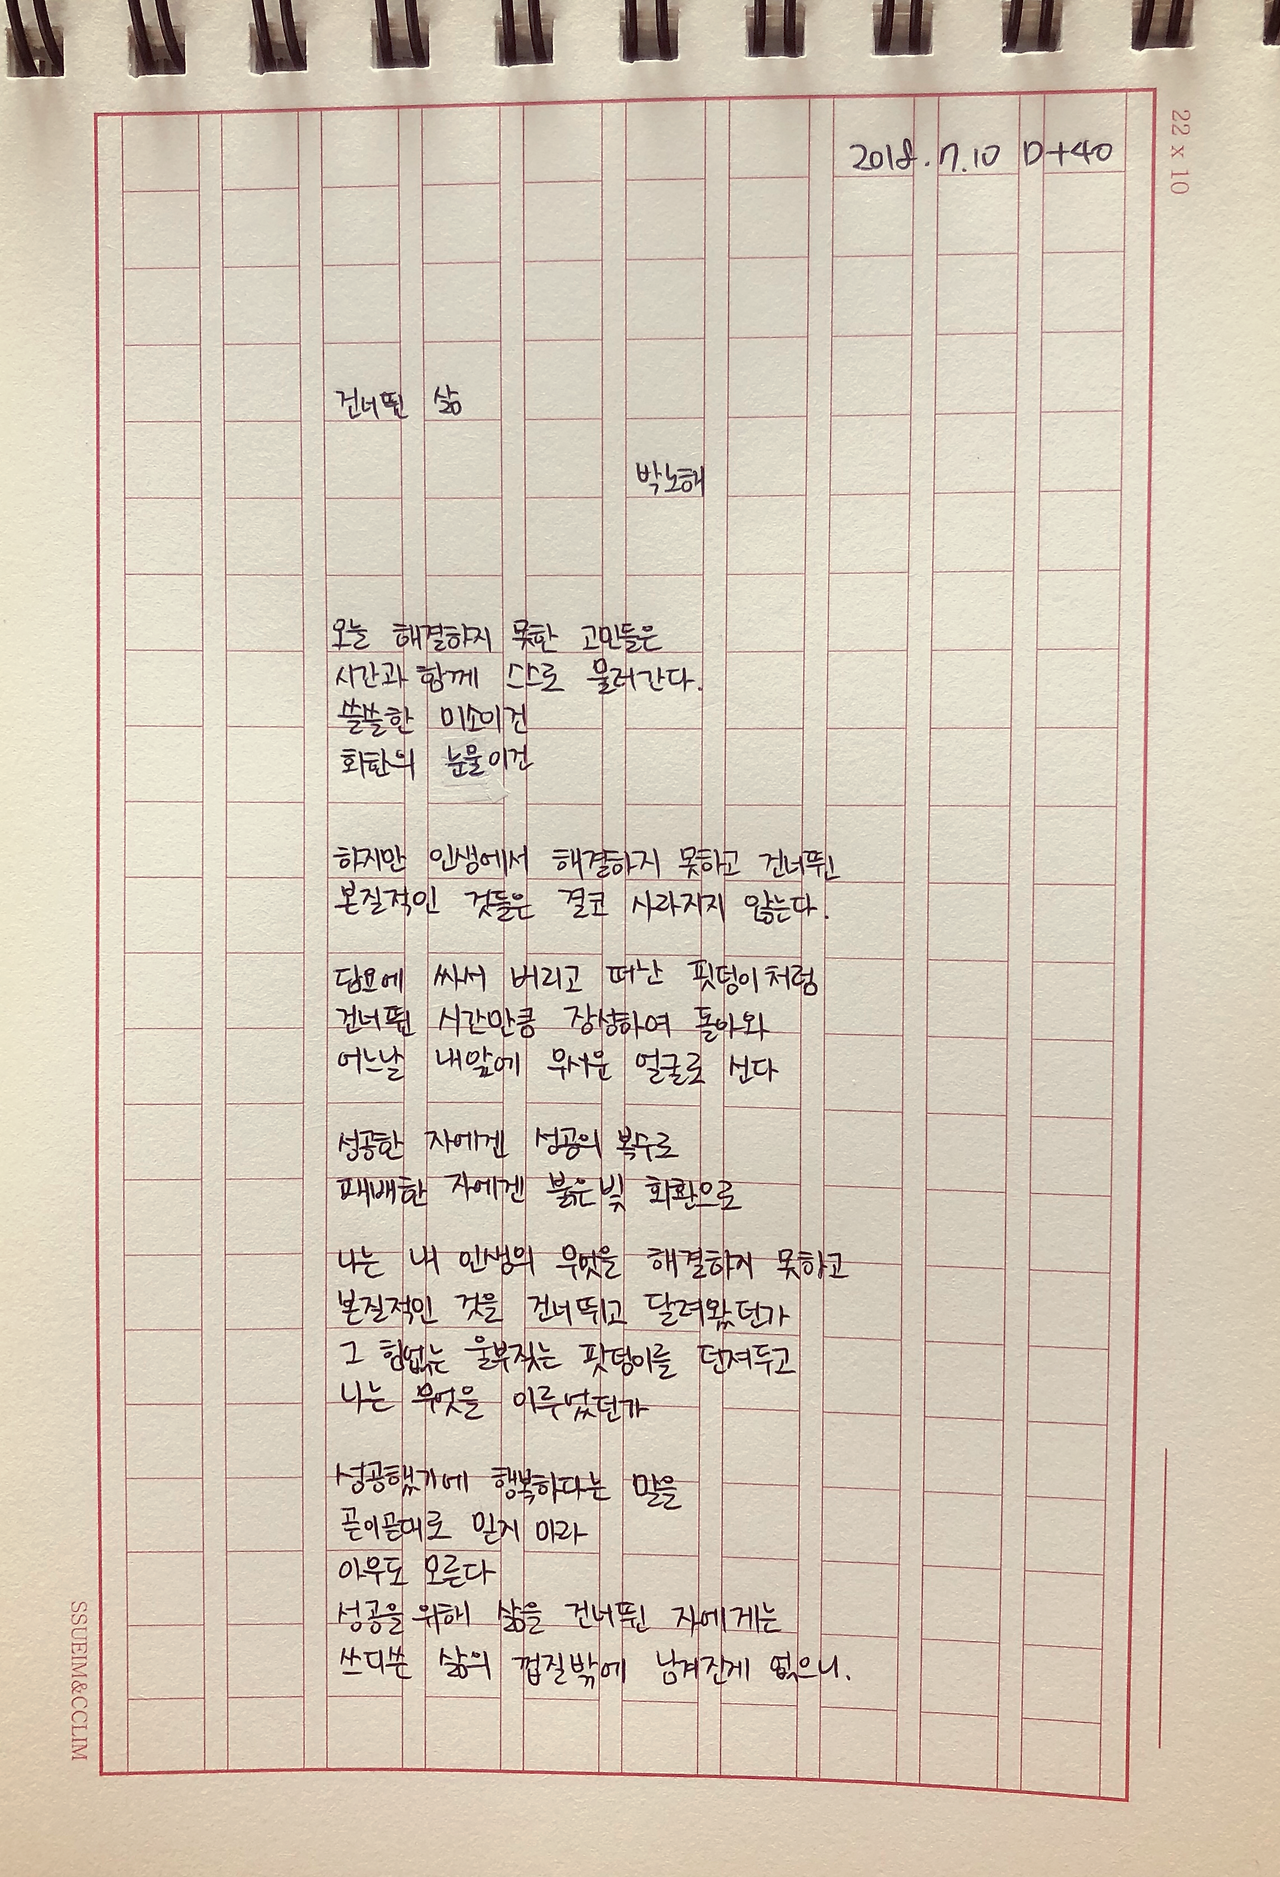 2018.7.10 D+40
22 x 10
건너뛴 삶
박노해
오늘 해결하지 못한 고민들은
시간과 함께 스스로 물러간다.
쓸쓸한 미소이건
회한의 눈물이건
하지만 인생에서 해결하지 못하고 건너뛴
본질적인 것들은 결코 사라지지 않는다.
담요에 싸서 버리고 떠난 핏덩이처럼
건너뛴 시간만큼 장성하여 돌아와
어느날 내앞에 무서운 얼굴로 선다
성공한 자에겐 성공의 복수로
패배한 자에겐 붉은빛 회환으로
나는 내 인생의 무엇을 해결하지 못하고
본질적인 것을 건너뛰고 달려왔던가
그 힘없는 울부짖는 핏덩이를 던져두고
나는 무엇을 이루었던가
성공했기에 행복하다는 말을
곧이곧대로 믿지 마라
아무도 모른다
성공을 위해 삶을 건너뛴 자에게는
쓰디쓴 삶의 껍질밖에 남겨진게 없으니.
SSUEIM&CCLIM